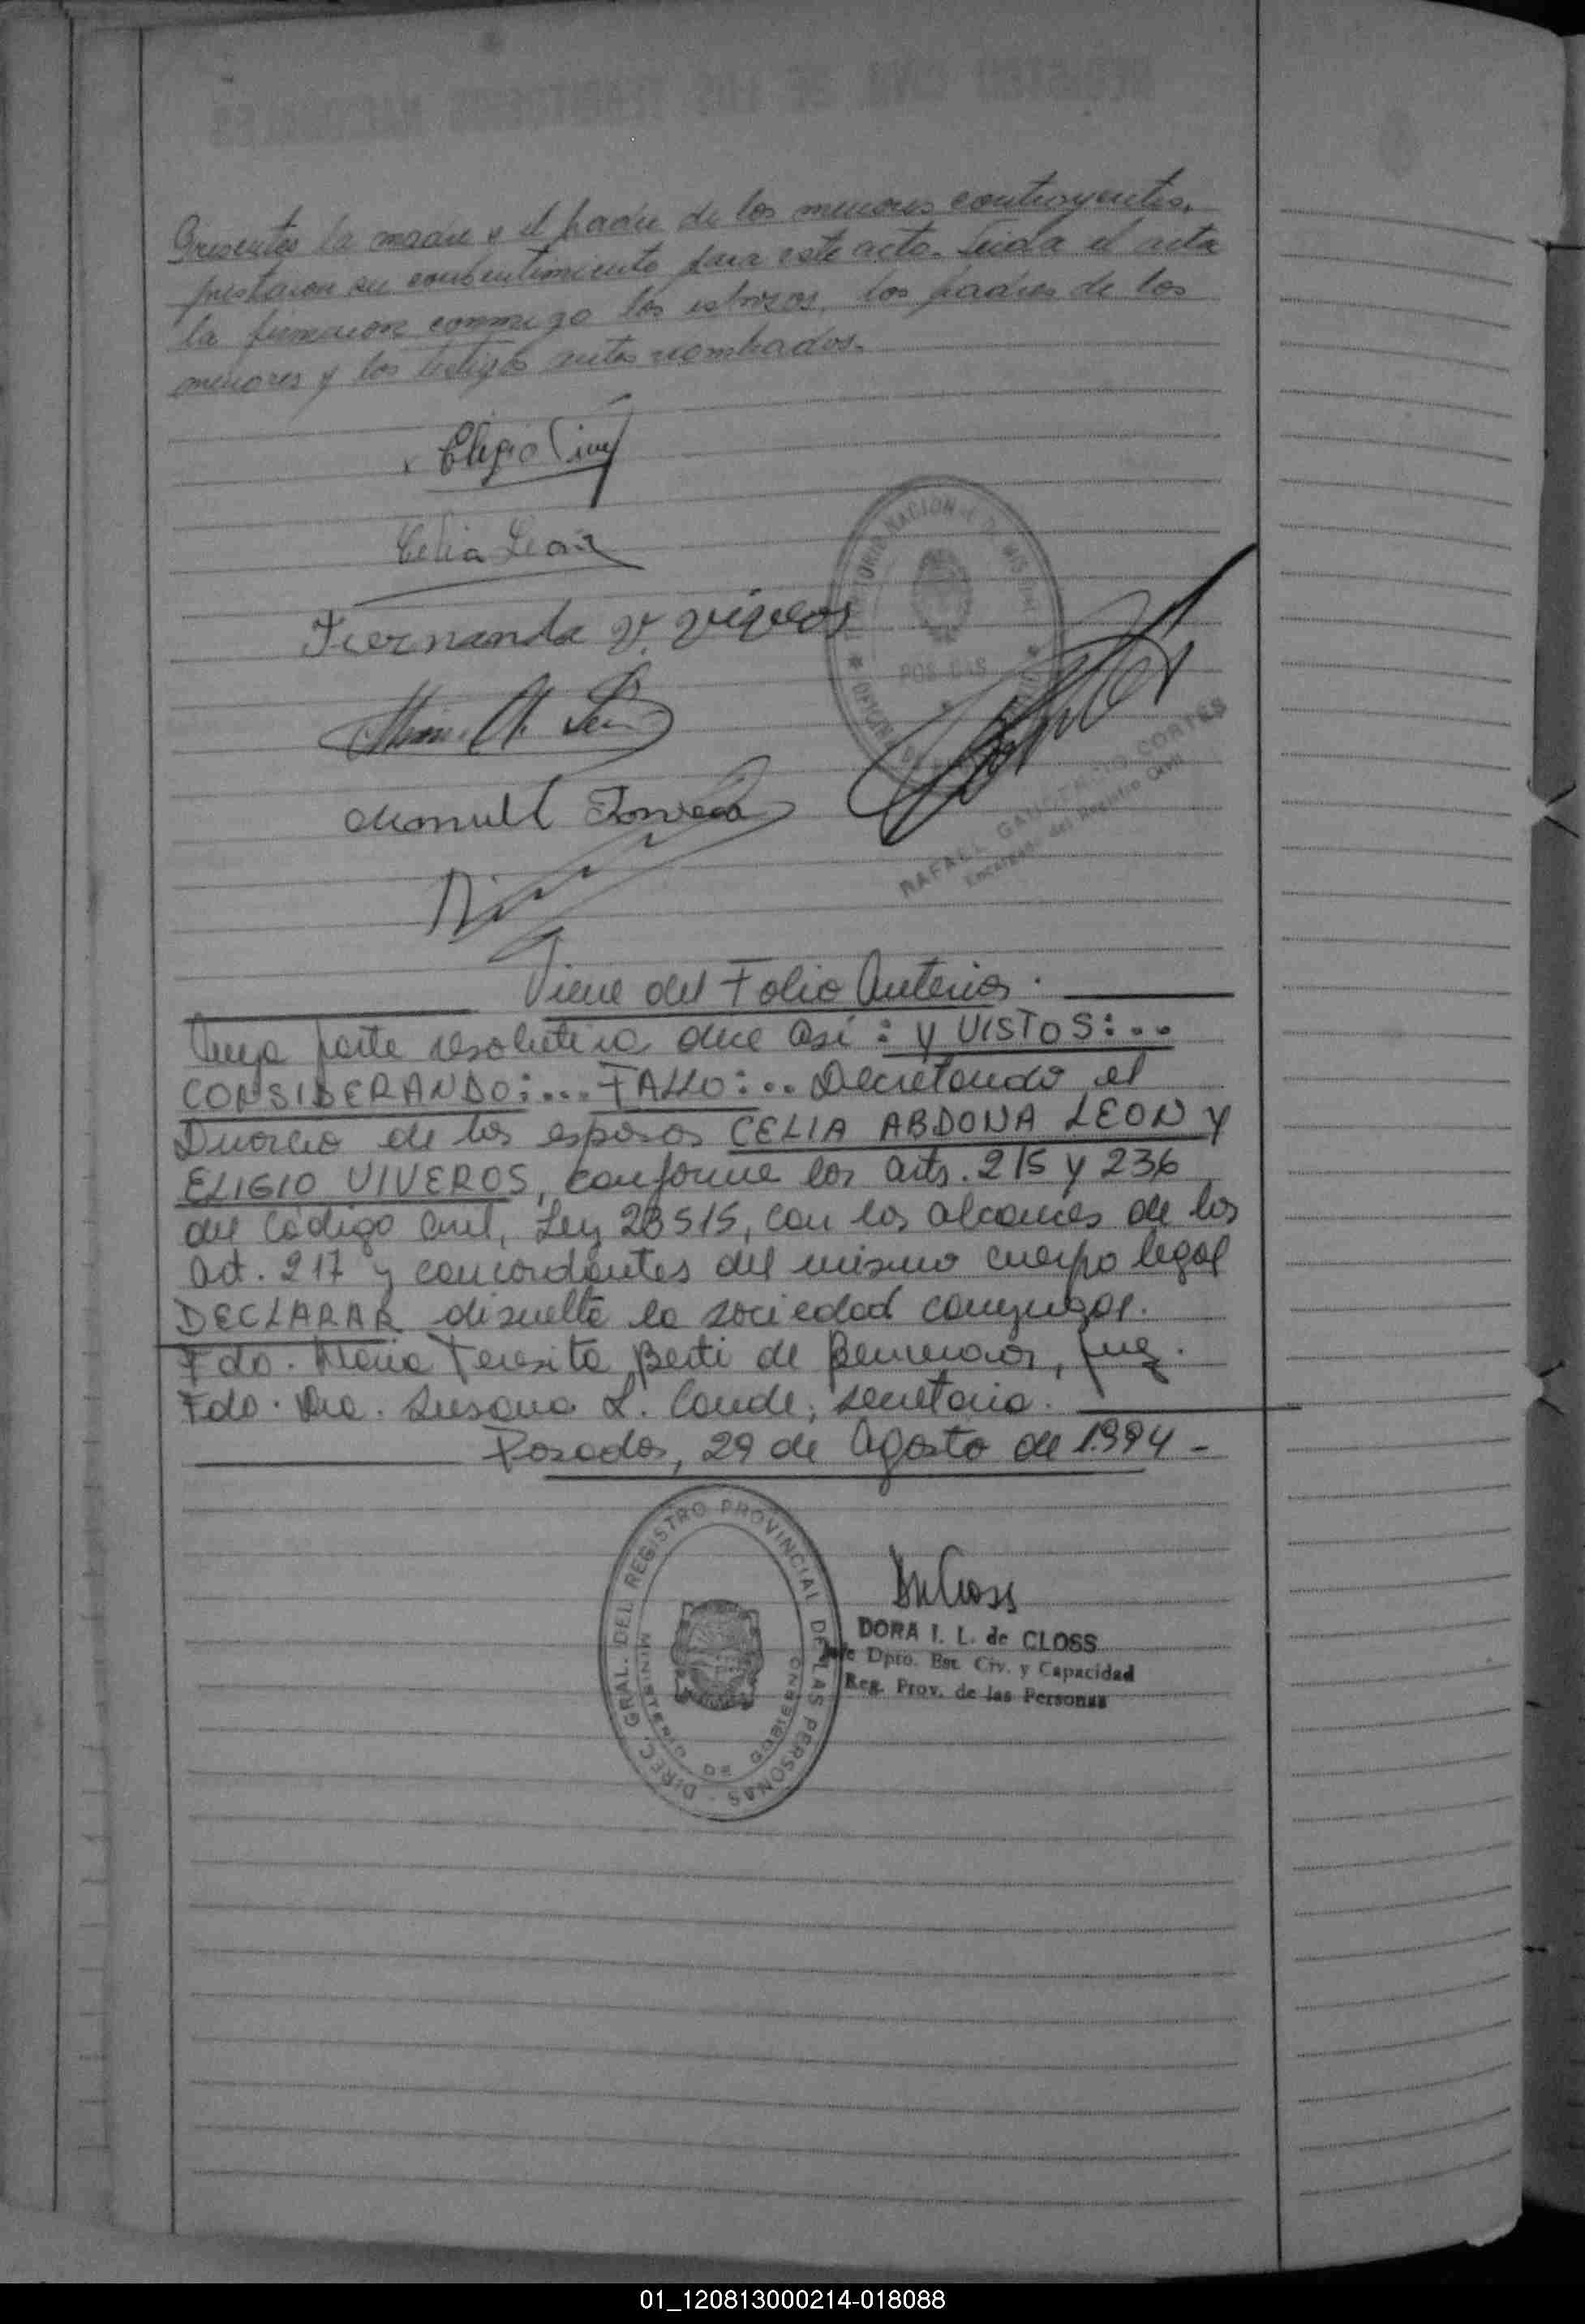 Presentes la madre y el padre de los menores contrayentes,
prestaron su consentimiento para este acto. Leida el acta
la firmaron conmigo los esposos, los padres de los
menores y los testigos antes nombrados.
Eligio
Celia León
Fernanda V. Viveros
Manuel Fonseca
TERRITORIO NACIONAL DE MISIONES
POSADAS
RAFAEL GAUDENCIO CORTÉS
Encargado del Registro Civil
Viene del Folio Anterior.
Cuya parte resolutiva dice así: Y VISTOS:..
CONSIDERANDO:... FALLO:.. Decretando el
Divorcio de los esposos CELIA ABDONA LEON Y
ELIGIO VIVEROS, conforme los arts. 215 y 236
del Código Civil, Ley 23515, con los alcances de los
art. 217 y concordantes del mismo cuerpo legal
DECLARAR disuelta la sociedad conyugal.
Fdo. Maria Teresita Berti de, Juez.
Fdo. Dra. Susana L. Conde, secretaria.
Posadas, 29 de Agosto de 1994-
DIREC. GRAL. DEL REGISTRO PROVINCIAL DE LAS PERSONAS -
MINISTERIO DE GOBIERNO
DORA I. L. de CLOSS
Jefe Dpto. Est. Civ. y Capacidad
Reg. Prov. de las Personas
01_120813000214-018088